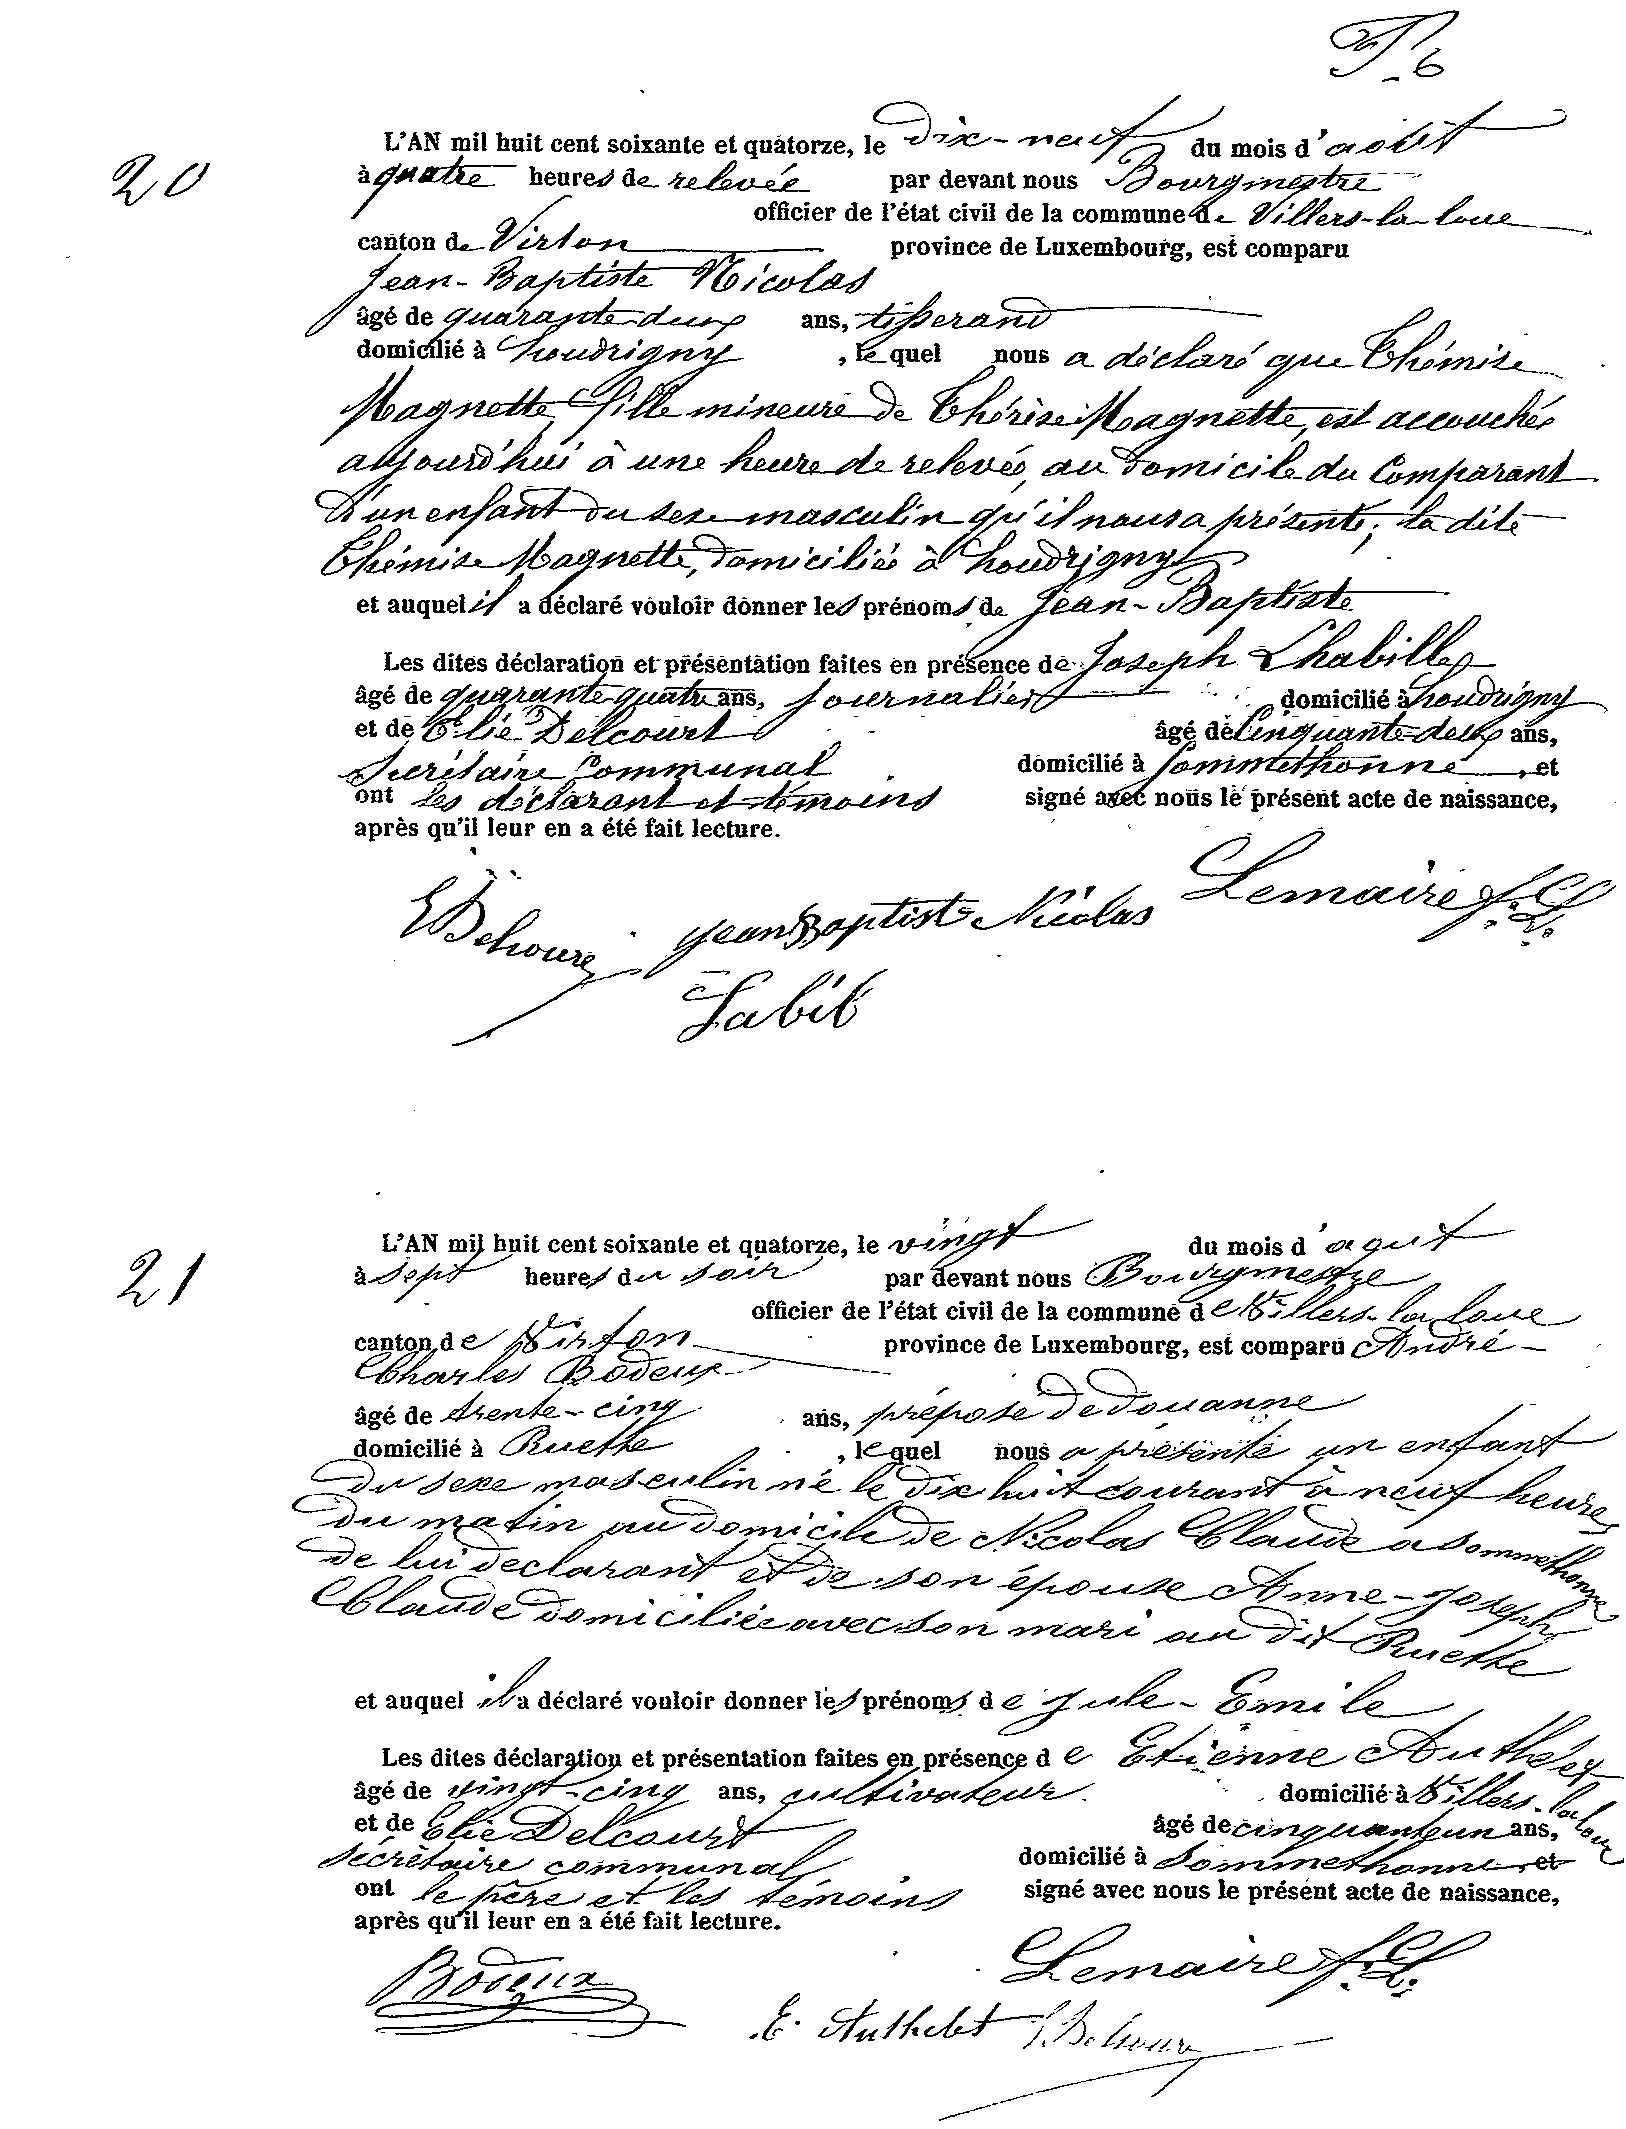 F. 6
20
L'AN mil huit cent soixante et quatorze, le dix-neuf du mois d'août
à quatre heures de relevée par devant nous Bourgmestre
officier de l'état civil de la commune de Villers-la-loue
canton de Virton province de Luxembourg, est comparu
Jean-Baptiste Nicolas
âgé de quarante-deux ans, tisserand
domicilié à houdrigny, le quel nous a déclaré que Thémise
Magnette, fille mineure de Thérèse Magnette, est accouchée
aujourd'hui à une heure de relevée, au domicile du Comparant
d'un enfant du sexe masculin qu'il nous a présenté; la dite
Thémise Magnette, domiciliée à houdrigny
et auquel il a déclaré vouloir donner les prénoms de Jean-Baptiste
Les dites déclaration et présentation faites en présence de Joseph Lhabille
âgé de quarante-quatre ans, journalier domicilié à houdrigny
et de Elie Delcourt âgé de Cinquante-deux ans,
Secrétaire Communal domicilié à Sommethonne, et
ont les déclarant et témoins signé avec nous le présent acte de naissance,
après qu'il leur en a été fait lecture.
Lemaire f.
Jean Baptiste Nicolas
21
L'AN mil huit cent soixante et quatorze, le vingt du mois d'aout
à sept heures du soir par devant nous Bourgmestre
officier de l'état civil de la commune de Villers-la loue
canton de Virton province de Luxembourg, est comparu André-
Charles Bodeux
âgé de trente-cinq ans, préposé de douanne
domicilié à Ruette, le quel nous a présenté un enfant
du sexe masculin né le dix huit courant à neuf heures
du matin au domicile de Nicolas Claude a Sommethonne
de lui declarant et de son épouse Anne-Joseph
Claude domiciliée avec son mari au dit Ruette
et auquel il a déclaré vouloir donner les prénoms de Jule-Emile
Les dites déclaration et présentation faites en présence de Etienne Authelet
âgé de vingt-cinq ans, cultivateur domicilié à Villers-la loue
et de Elie Delcourt âgé de cinquante un ans,
sécrétaire communal domicilié à Sommethonne, et
ont le père et les témoins signé avec nous le présent acte de naissance,
après qu'il leur en a été fait lecture.
Bodeux
Lemaire f.
E. Authelet